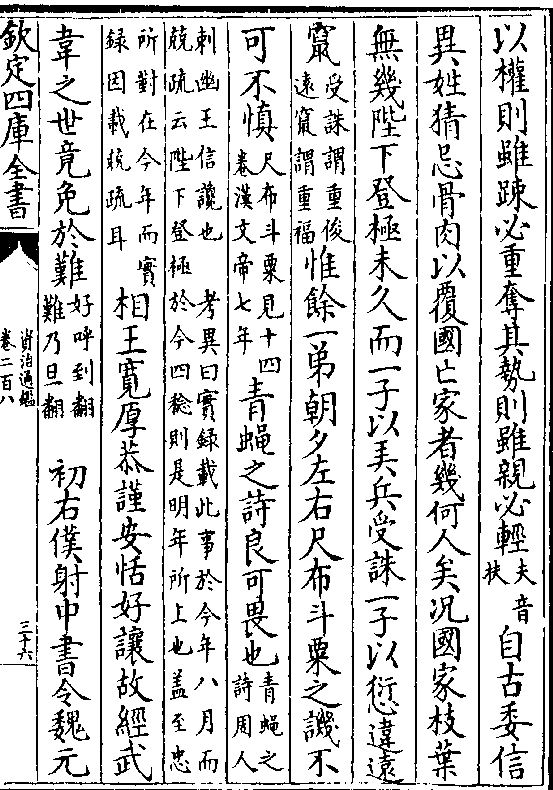 以權則雖疎必重奪其勢則雖親必輕夫音
扶自古委信
異姓猜忌骨肉以覆國亡家者幾何人矣況國家枝葉
無幾陛下登極未久而一子以弄兵受誅一子以愆違遠
竄受誅謂重俊
遠竄謂重福惟餘一弟朝夕左右尺布斗粟之譏不
可不慎尺布斗粟見十四
卷漢文帝七年青蠅之詩良可畏也青蠅之
詩周人
刺幽王信讒也 考異曰實録載此事於今年八月而
兢疏云陛下登極於今四稔則是明年所上也盖至忠
所對在今年而實
録因載兢疏耳相王寛厚恭謹安恬好讓故經武
韋之世竟免於難好呼到翻
難乃旦翻 初右僕射中書令魏元
欽定四庫全書
資治通鑑
卷二百八
三十六